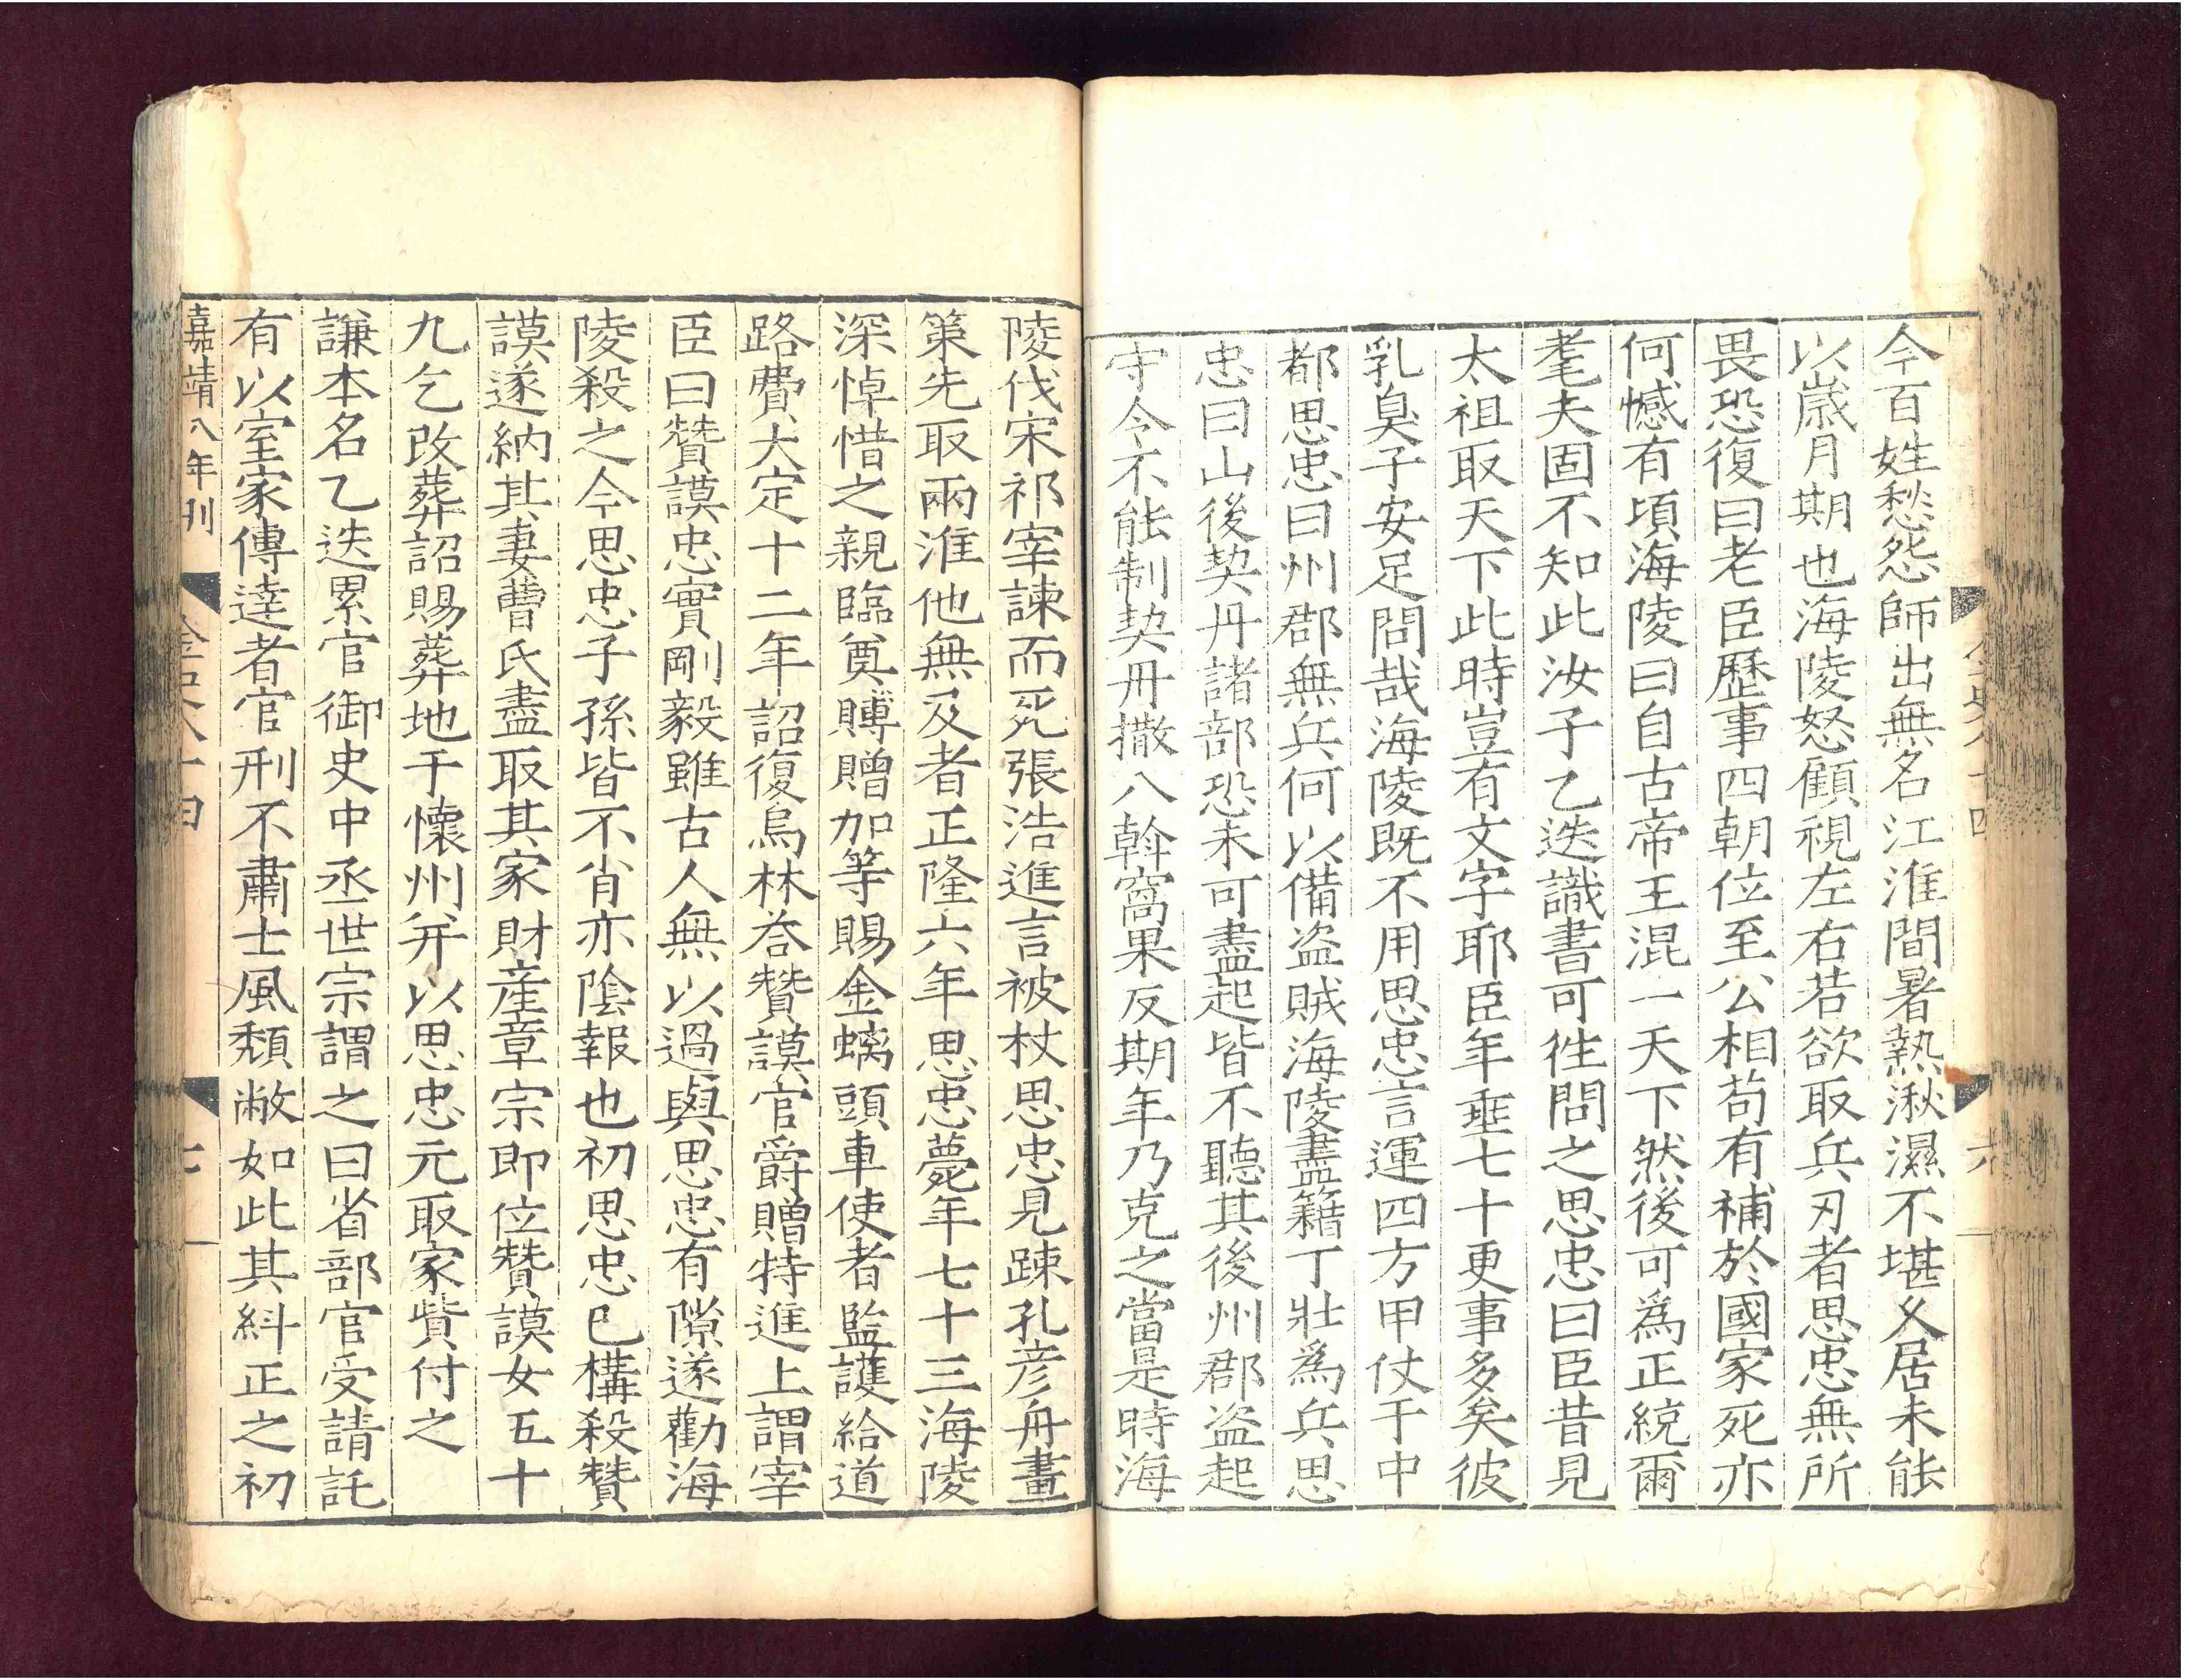 今百姓愁怨師出無名江淮間暑熱湫濕不堪久居未能
以歲月期也海陵怒顧視左右若欲取兵刃者思忠無所
畏恐復曰老臣歷事四朝位至公相苟有補於國家死亦
何憾有頃海陵曰自古帝王混一天下然後可爲正統爾
耄夫固不知此汝子乙迭識書可徃問之思忠曰臣昔見
太祖取天下此時豈有文字耶臣年垂七十更事多矣彼
乳臭子安足問哉海陵既不用思忠言運四方甲仗于中
都思忠曰州郡無兵何以備盜賊海陵盡籍丁壯爲兵思
忠曰山後契丹諸部恐未可盡起皆不聽其後州郡盜起
守令不能制契丹撒八斡窩果反期年乃克之當是時海
金史八十四
六
陵伐宋祁宰諫而死張浩進言被杖思忠見踈孔彥舟畫
策先取兩淮他無及者正隆六年思忠薨年七十三海陵
深悼惜之親臨奠賻贈加等賜金螭頭車使者監護給道
路費大定十二年詔復烏林荅贊謨官爵贈特進上謂宰
臣曰贊謨忠實剛毅雖古人無以過與思忠有隙遂勸海
陵殺之今思忠子孫皆不肖亦陰報也初思忠已構殺贊
謨遂納其妻曹氏盡取其家財産章宗即位贊謨女五十
九乞改葬詔賜葬地于懷州并以思忠元取家貲付之
謙本名乙迭累官御史中丞世宗謂之曰省部官受請託
有以室家傳達者官刑不肅士風頹敝如此其糾正之初
嘉靖八年刊
金史八十四
七